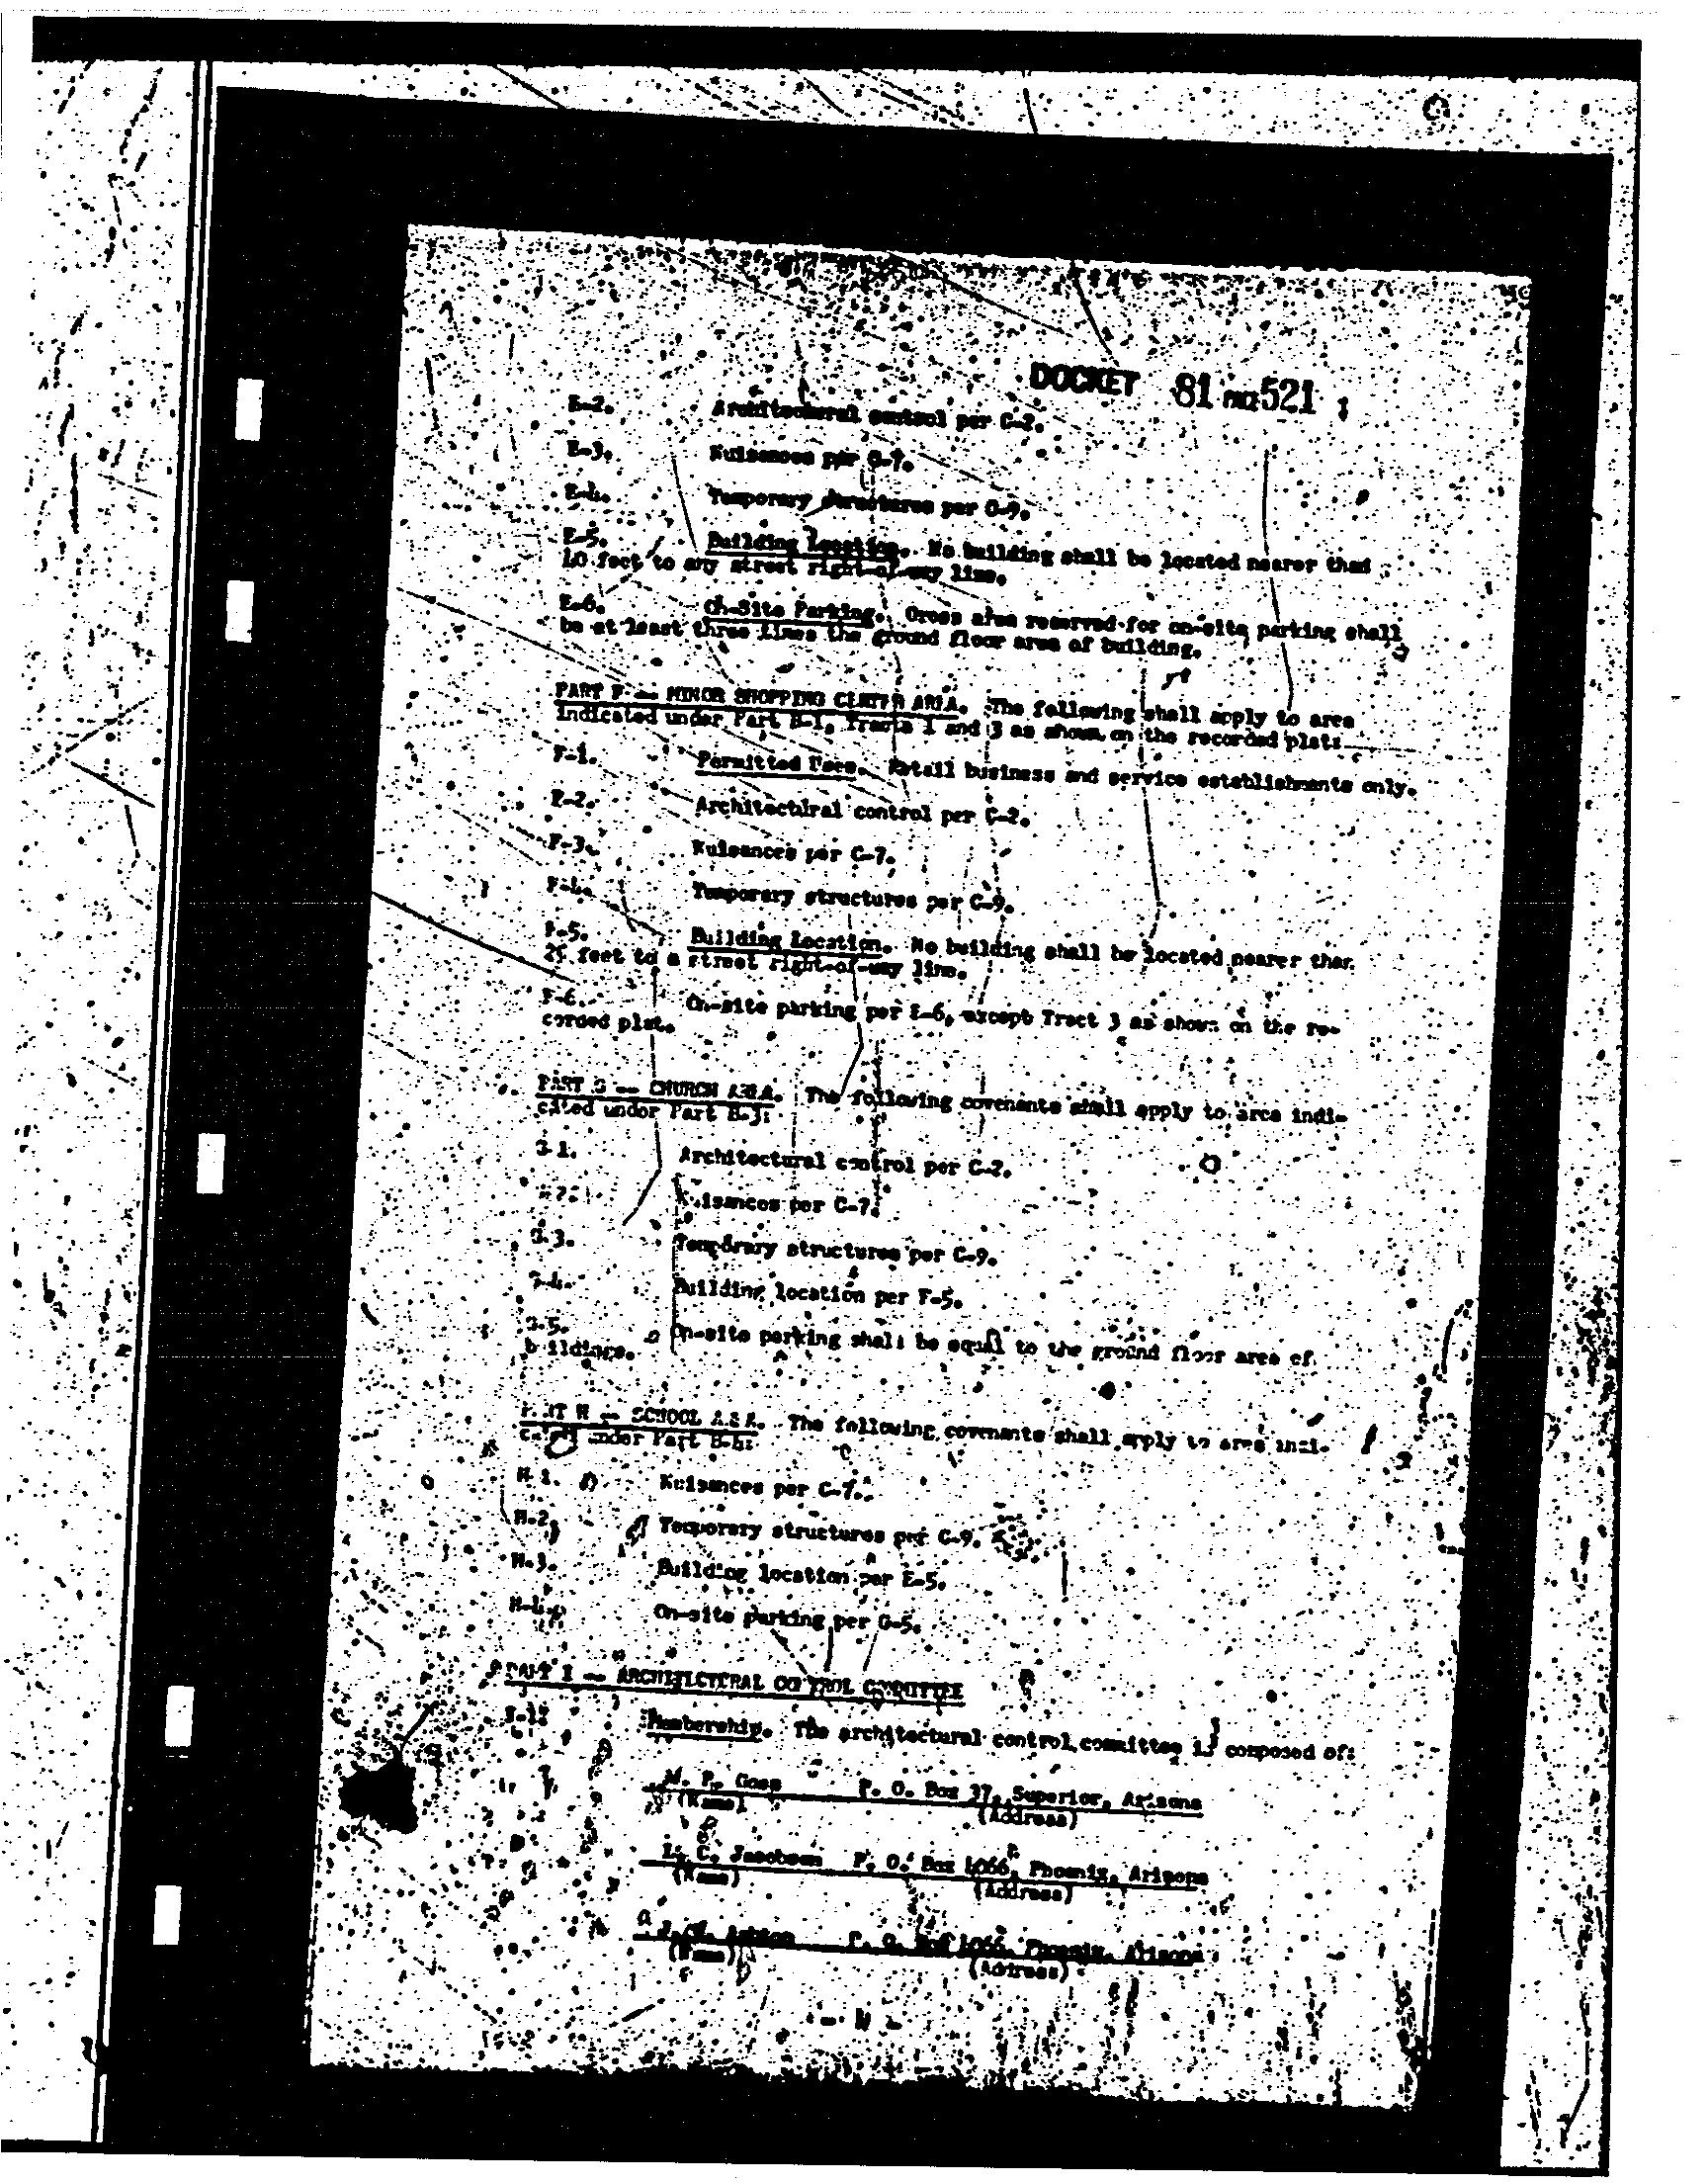 DOCKET 81 PAGE 521
E-2. Architectural control per C-2.
E-3. Nuisances per C-7.
E-4. Temporary structures per C-9.
E-5. Building Location. No building shall be located nearer than
40 feet to any street right-of-way line.
E-6. On-Site Parking. Gross area reserved for on-site parking shall
be at least three times the ground floor area of building.
PART F -- MINOR SHOPPING CENTER AREA. The following shall apply to area
indicated under Part B-1, Tracts 1 and 3 as shown on the recorded plat:
F-1. Permitted Uses. Retail business and service establishments only.
F-2. Architectural control per C-2.
F-3. Nuisances per C-7.
F-4. Temporary structures per C-9.
F-5. Building Location. No building shall be located nearer than
25 feet to a street right-of-way line.
F-6. On-site parking per E-6, except Tract 3 as shown on the re-
corded plat.
PART G -- CHURCH AREA. The following covenants shall apply to area indi-
cated under Part B-3:
G-1. Architectural control per C-2.
G-2. Nuisances per C-7.
G-3. Temporary structures per C-9.
G-4. Building location per F-5.
G-5. On-site parking shall be equal to the ground floor area of
buildings.
PART H -- SCHOOL AREA. The following covenants shall apply to area indi-
cated under Part B-4:
H-1. Nuisances per C-7.
H-2. Temporary structures per C-9.
H-3. Building location per E-5.
H-4. On-site parking per G-5.
PART I -- ARCHITECTURAL CONTROL COMMITTEE
I-1. Membership. The architectural control committee is composed of:
M. P. Goss P. O. Box 37, Superior, Arizona
(Name) (Address)
L. C. Jacobson P. O. Box 4066, Phoenix, Arizona
(Name) (Address)
J. Ashton P. O. Box 4066, Phoenix, Arizona
(Name) (Address)